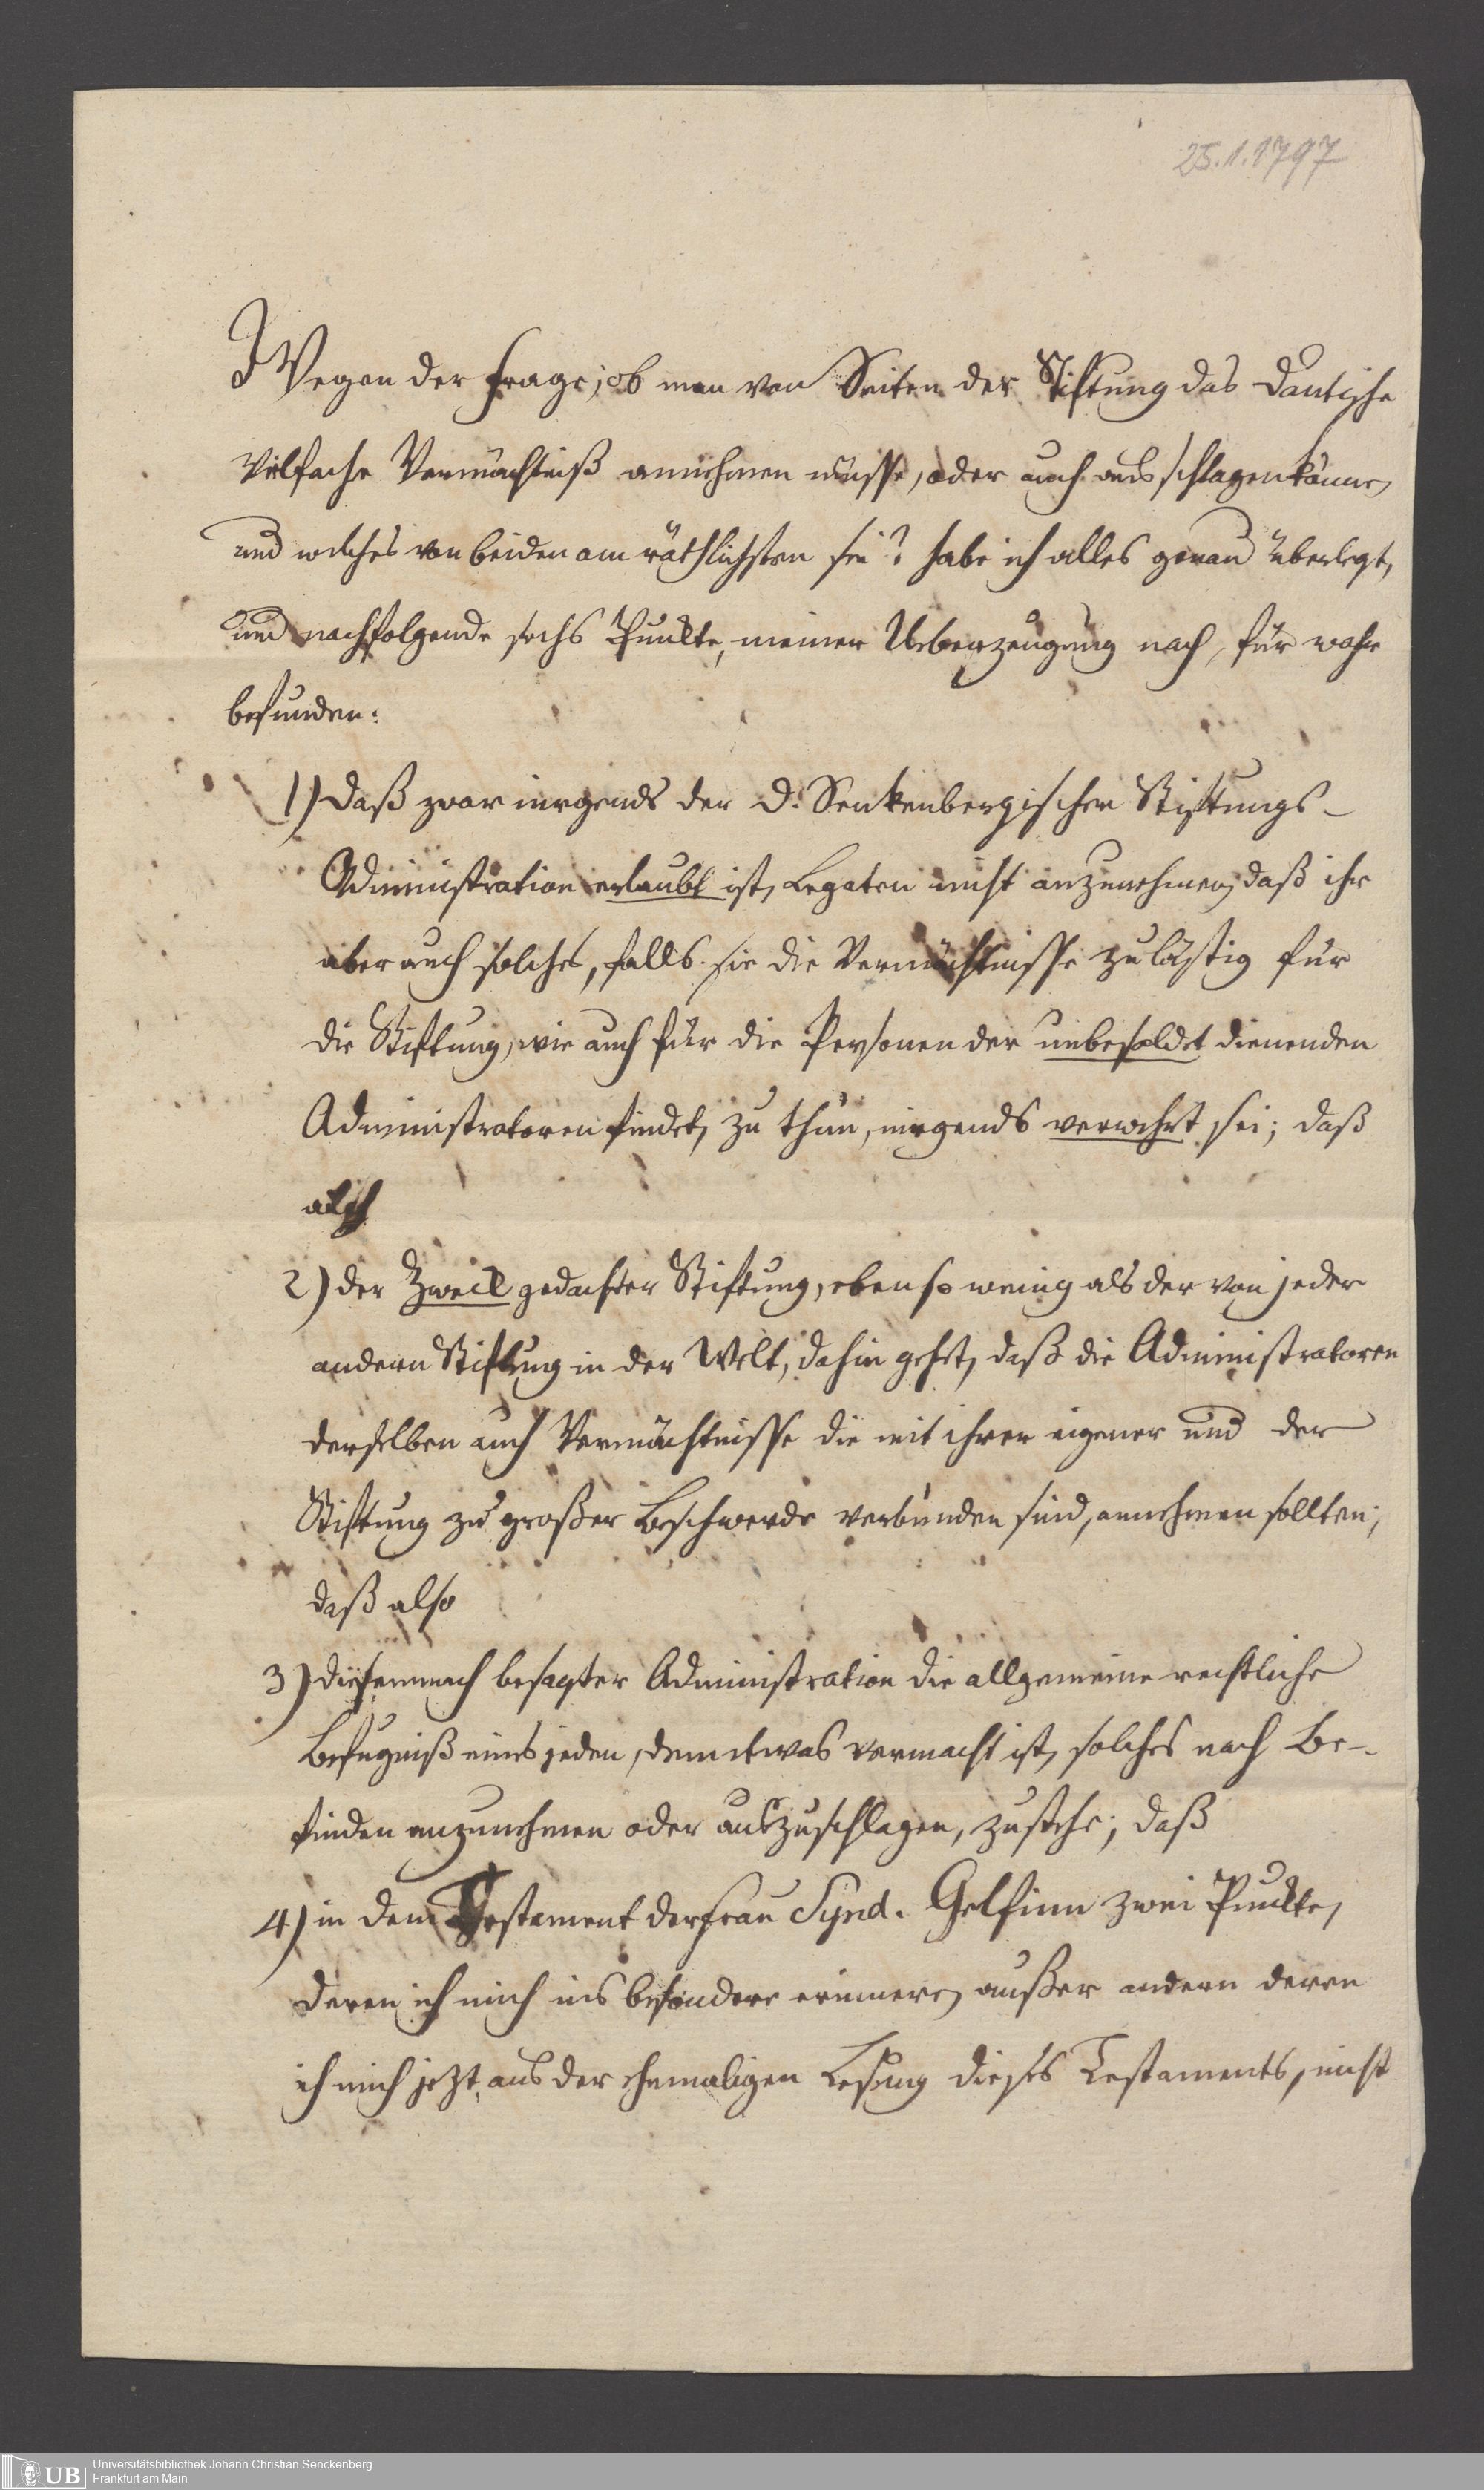 25.1.1797
Wegen der Frage; ob man von Seiten der Stiftung das Dantische
vielfache Vermächtniß annehmen müsse, oder auch ausschlagen könne,
und welches von beiden am räthlichsten sei? habe ich alles genau überlegt,
und nachfolgende sechs Punkte, meiner Ueberzeugung nach, für wahr
befunden:
1) daß zwar nirgends der D. Senkenbergischen Stiftungs-
Administration erlaubt ist, Legaten nicht anzunehmen, daß ihr
aber auch solches, falls sie die Vermächtnisse zu lästig für
die Stiftung, wie auch für die Personen der unbesoldet dienenden
Administratoren findet, zu thun, nirgends verwehrt sei; daß
auch
2) der Zweck gedachter Stiftung, eben so wenig als der von jeder
andern Stiftung in der Welt, dahin gehet, daß die Administratoren
derselben auch Vermächtnisse die mit ihrer eigener und der
Stiftung zu großer Beschwerde verbunden sind, annehmen sollten;
daß also
3) diesemnach besagter Administration die allgemeine rechtliche
Befugniß eines jeden, dem etwas vermacht ist, solches nach Be-
finden anzunehmen oder auszuschlagen, zustehe; daß
4) in dem Testament der Frau Synd. Gelfinn zwei Punkte,
deren ich mich ins besondere erinnere, außer andern deren
ich mich jezt aus der ehemaligen Lesung dieses Testaments, nicht
UB
Universitätsbibliothek Johann Christian Senckenberg
Frankfurt am Main